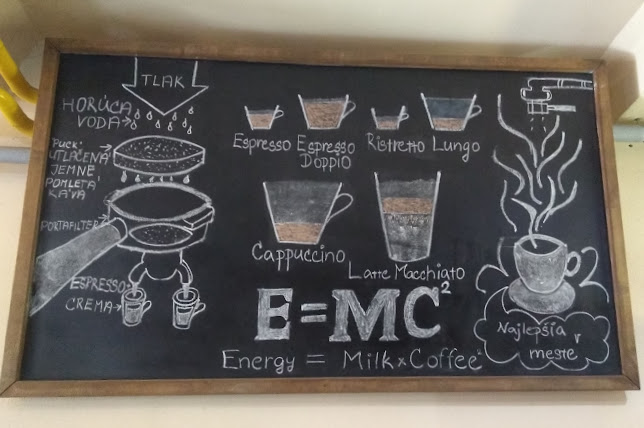 TLAK
HORÚCA
VODA
PUCK:
UTLAČENÁ
JEMNE
POMLETÁ
KÁVA
PORTAFILTER
ESPRESSO
CREMA
Espresso
Espresso
Doppio
Ristretto
Lungo
Cappuccino
Latte Macchiato
E=MC²
Energy = Milk x Coffee²
Najlepšia v
meste